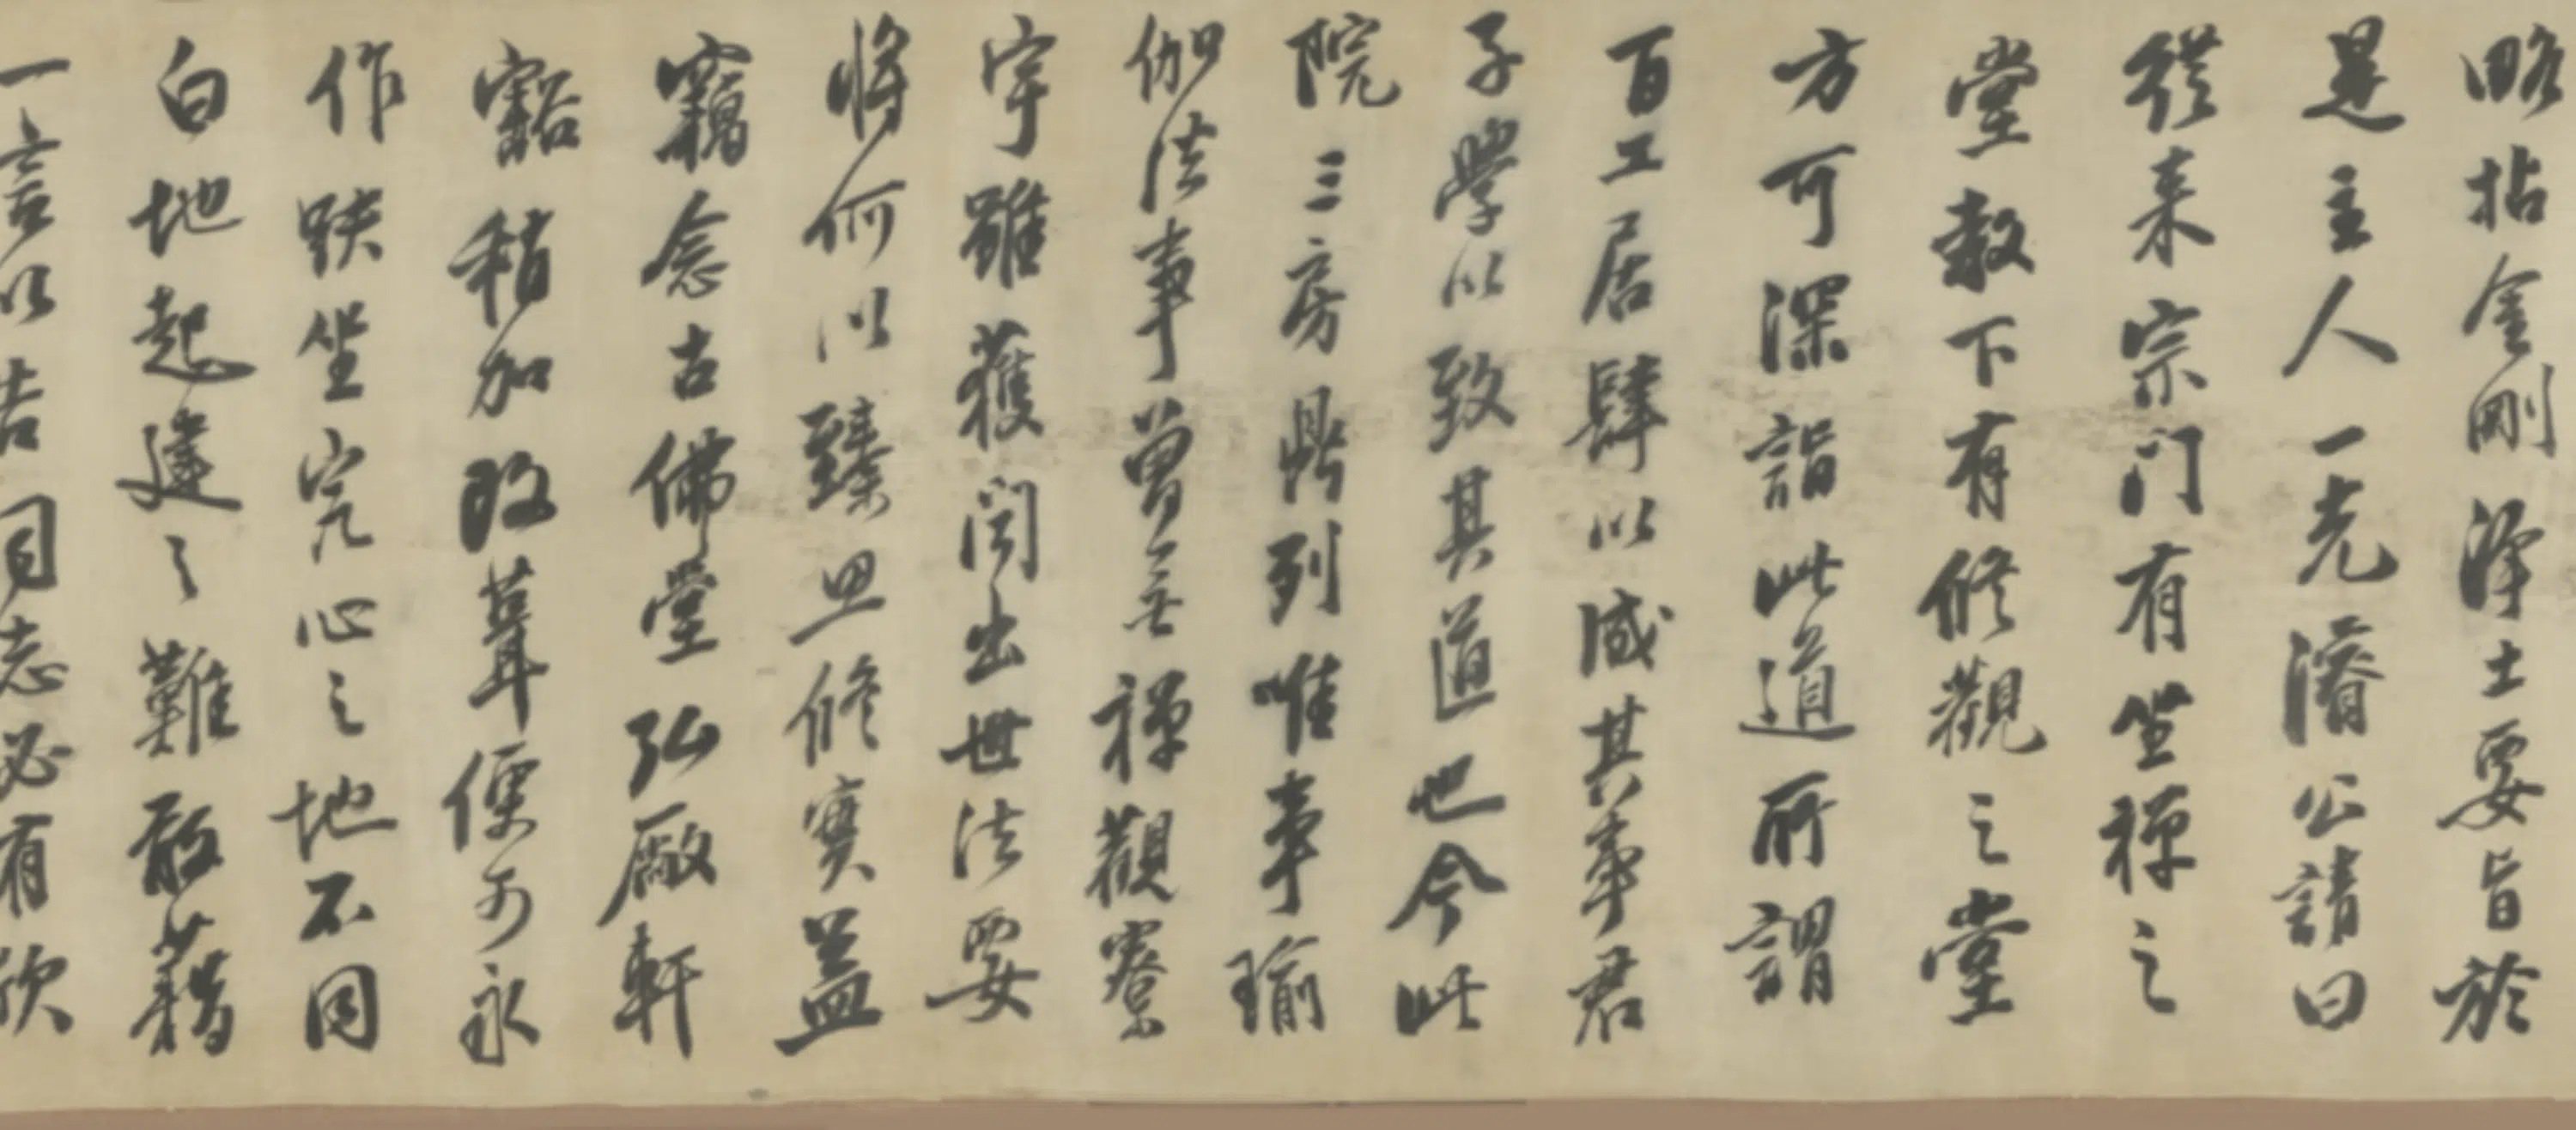 略拈金剛淨土要旨於
是主人一光濬公請曰
從来宗门有坐禪之
堂教下有修觀之堂
方可深詣此道所謂
百工居肆以成其事君
子學以致其道也今此
院三房鼎列唯事瑜
伽法事曾无禪觀寮
宇雖獲闻出世法要
將何以臻思修實益
竊念古佛堂弘廠軒
豁稍加改葺便可永
作趺坐究心之地不同
白地起建之難敢藉
一言以告同志必有欣